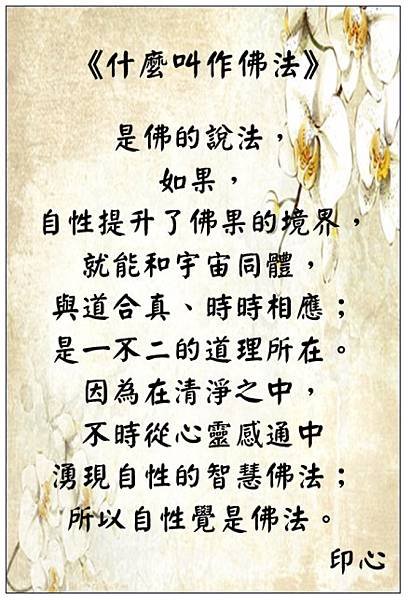 《什麼叫作佛法》
是佛的說法，
如果，
自性提升了佛果的境界，
就能和宇宙同體，
與道合真、時時相應；
是一不二的道理所在。
因為在清淨之中，
不時從心靈感通中
湧現自性的智慧佛法；
所以自性覺是佛法。
印心